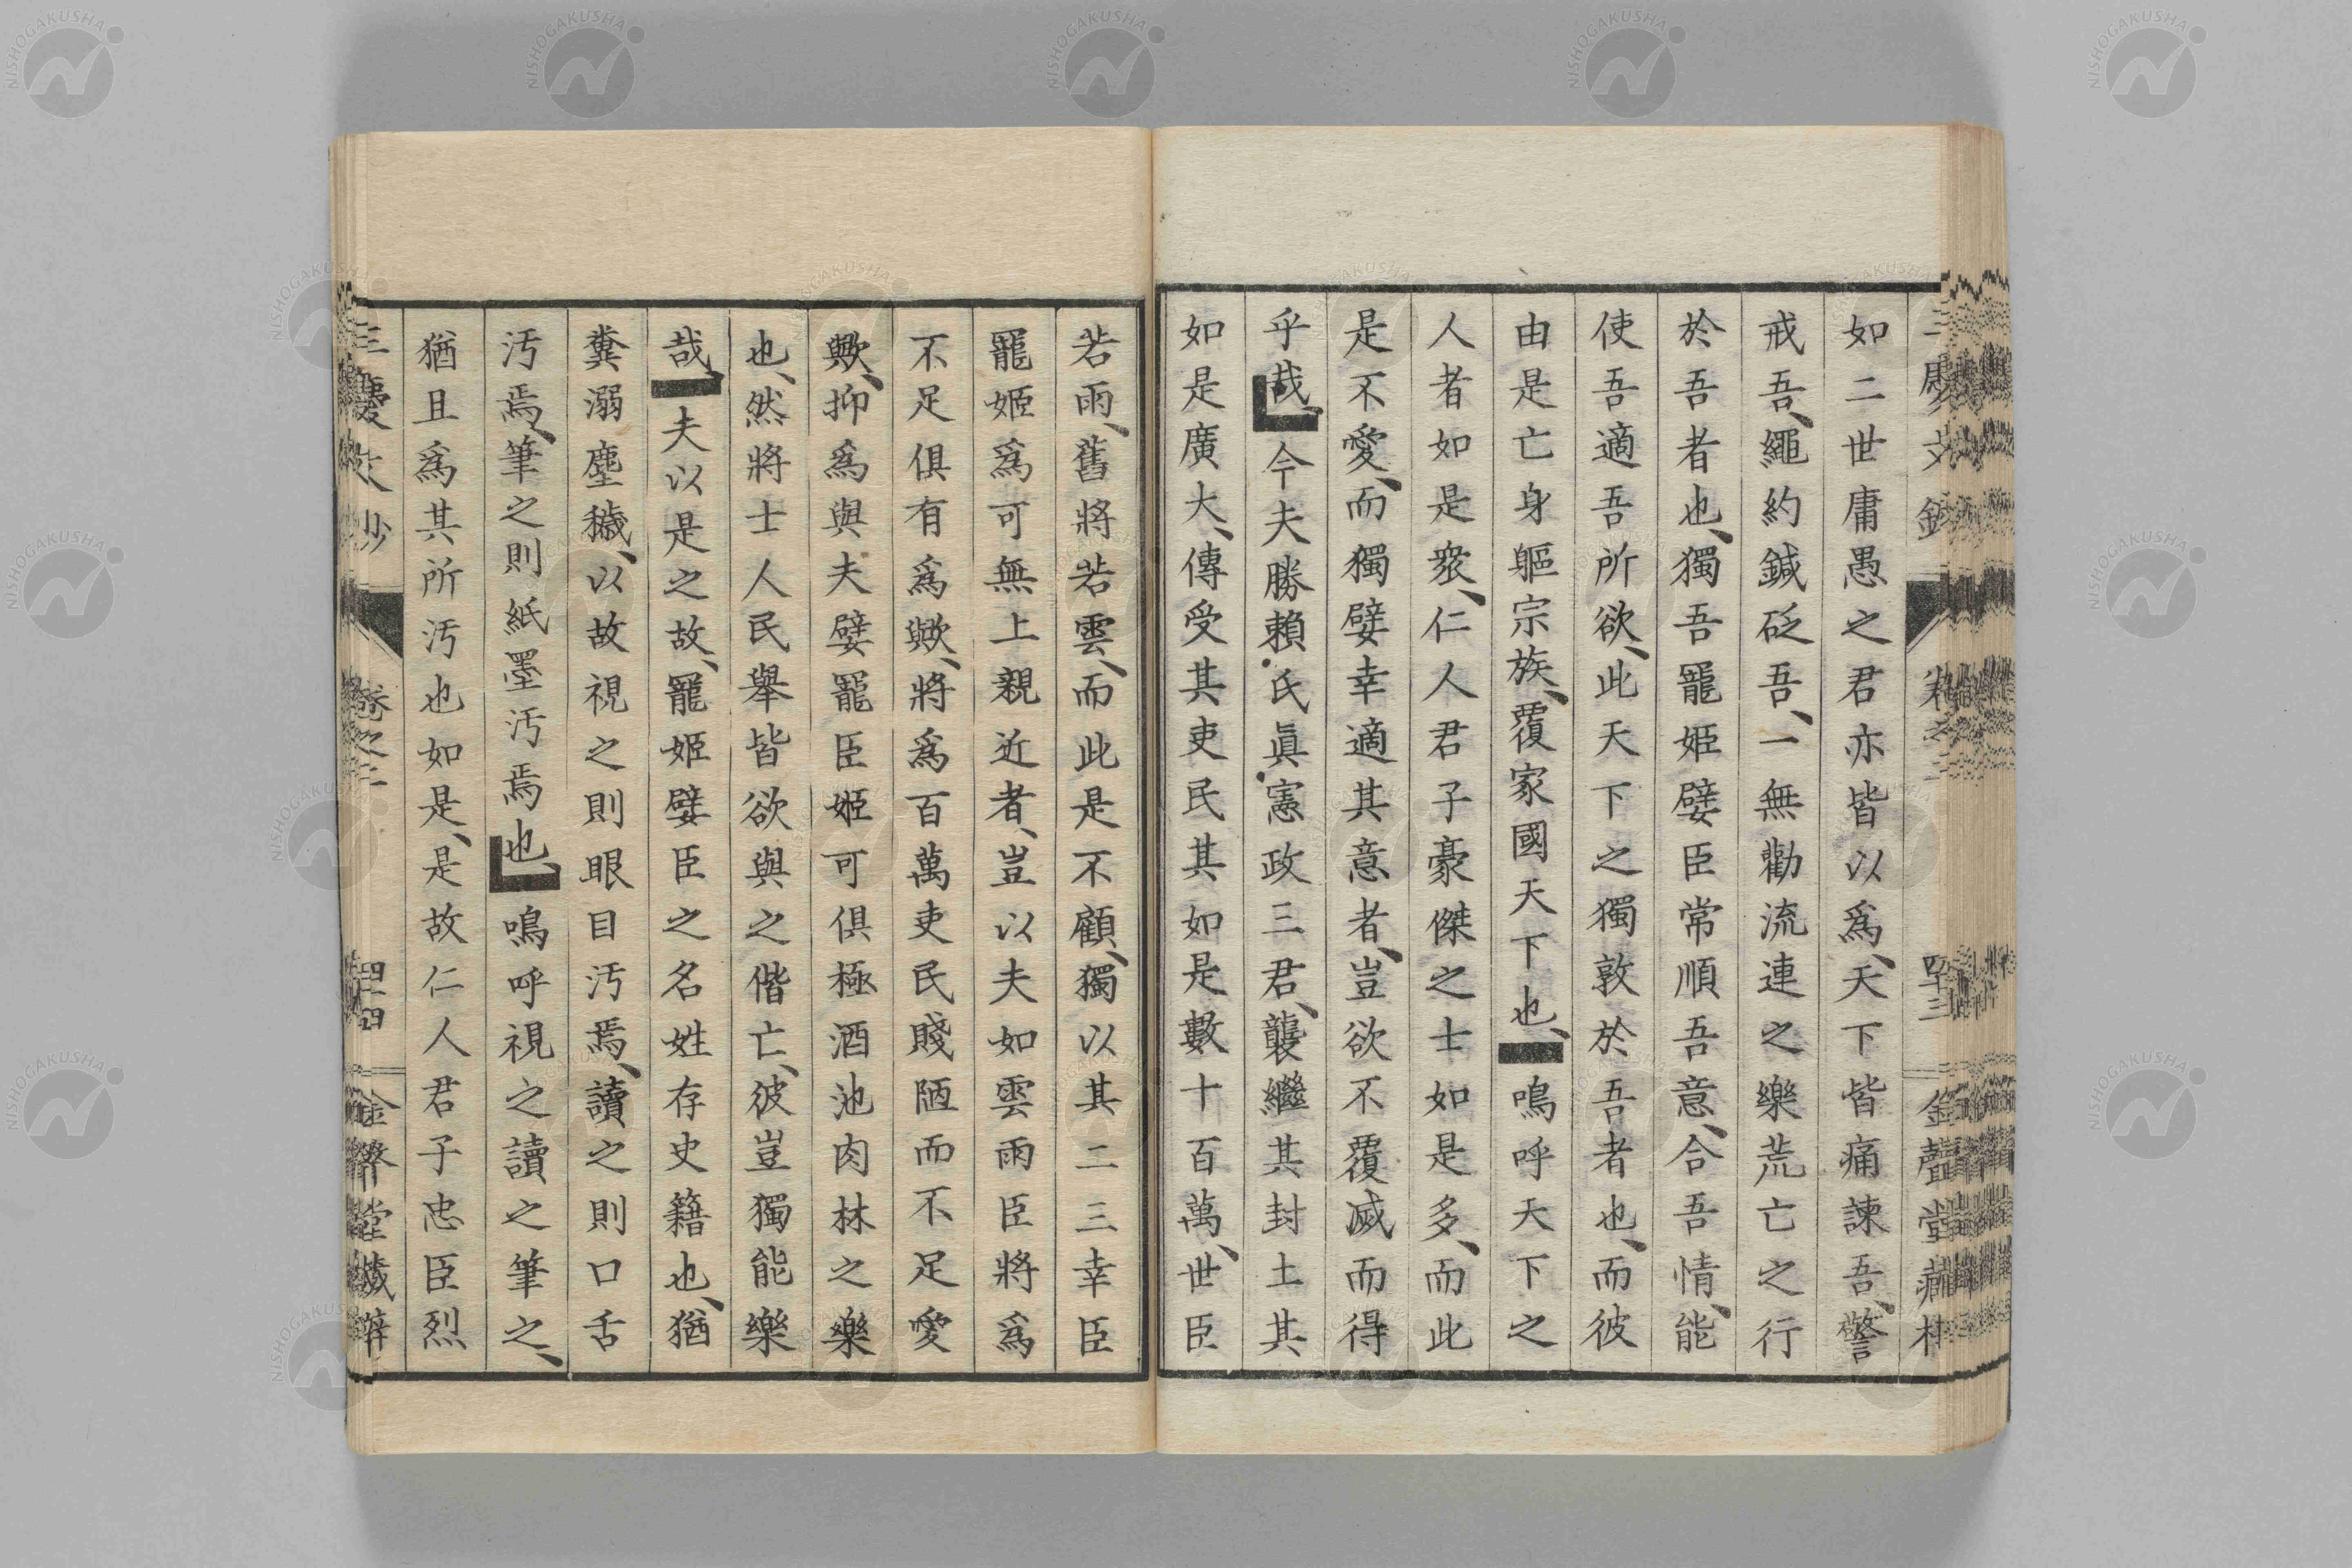 如二世庸愚之君亦皆以爲、天下皆痛諫吾、警
戒吾、繩約鍼砭吾、一無勸流連之樂荒亡之行
於吾者也、獨吾寵姬嬖臣常順吾意、合吾情、能
使吾適吾所欲、此天下之獨敦於吾者也、而彼
由是亡身軀宗族、覆家國天下也、鳴呼天下之
人者如是衆、仁人君子豪傑之士如是多、而此
是不愛、而獨嬖幸適其意者、豈欲不覆滅而得
乎哉、今夫勝賴氏眞憲政三君、襲繼其封土其
如是廣大、傳受其吏民其如是數十百萬、世臣
若雨、舊將若雲、而此是不顧、獨以其二三幸臣
寵姬爲可無上親近者、豈以夫如雲雨臣將爲
不足俱有爲歟、將爲百萬吏民賤陋而不足愛
歟、抑爲與夫嬖寵臣姬可俱極酒池肉林之樂
也、然將士人民舉皆欲與之偕亡、彼豈獨能樂
哉、夫以是之故、寵姬嬖臣之名姓存史籍也、猶
糞溺塵穢、以故視之則眼目汚焉、讀之則口舌
汚焉、筆之則紙墨汚焉也、鳴呼視之讀之筆之、
猶且爲其所汚也如是、是故仁人君子忠臣烈
三慶文鈔 卷之二 四四
NISHOGAKUSHA